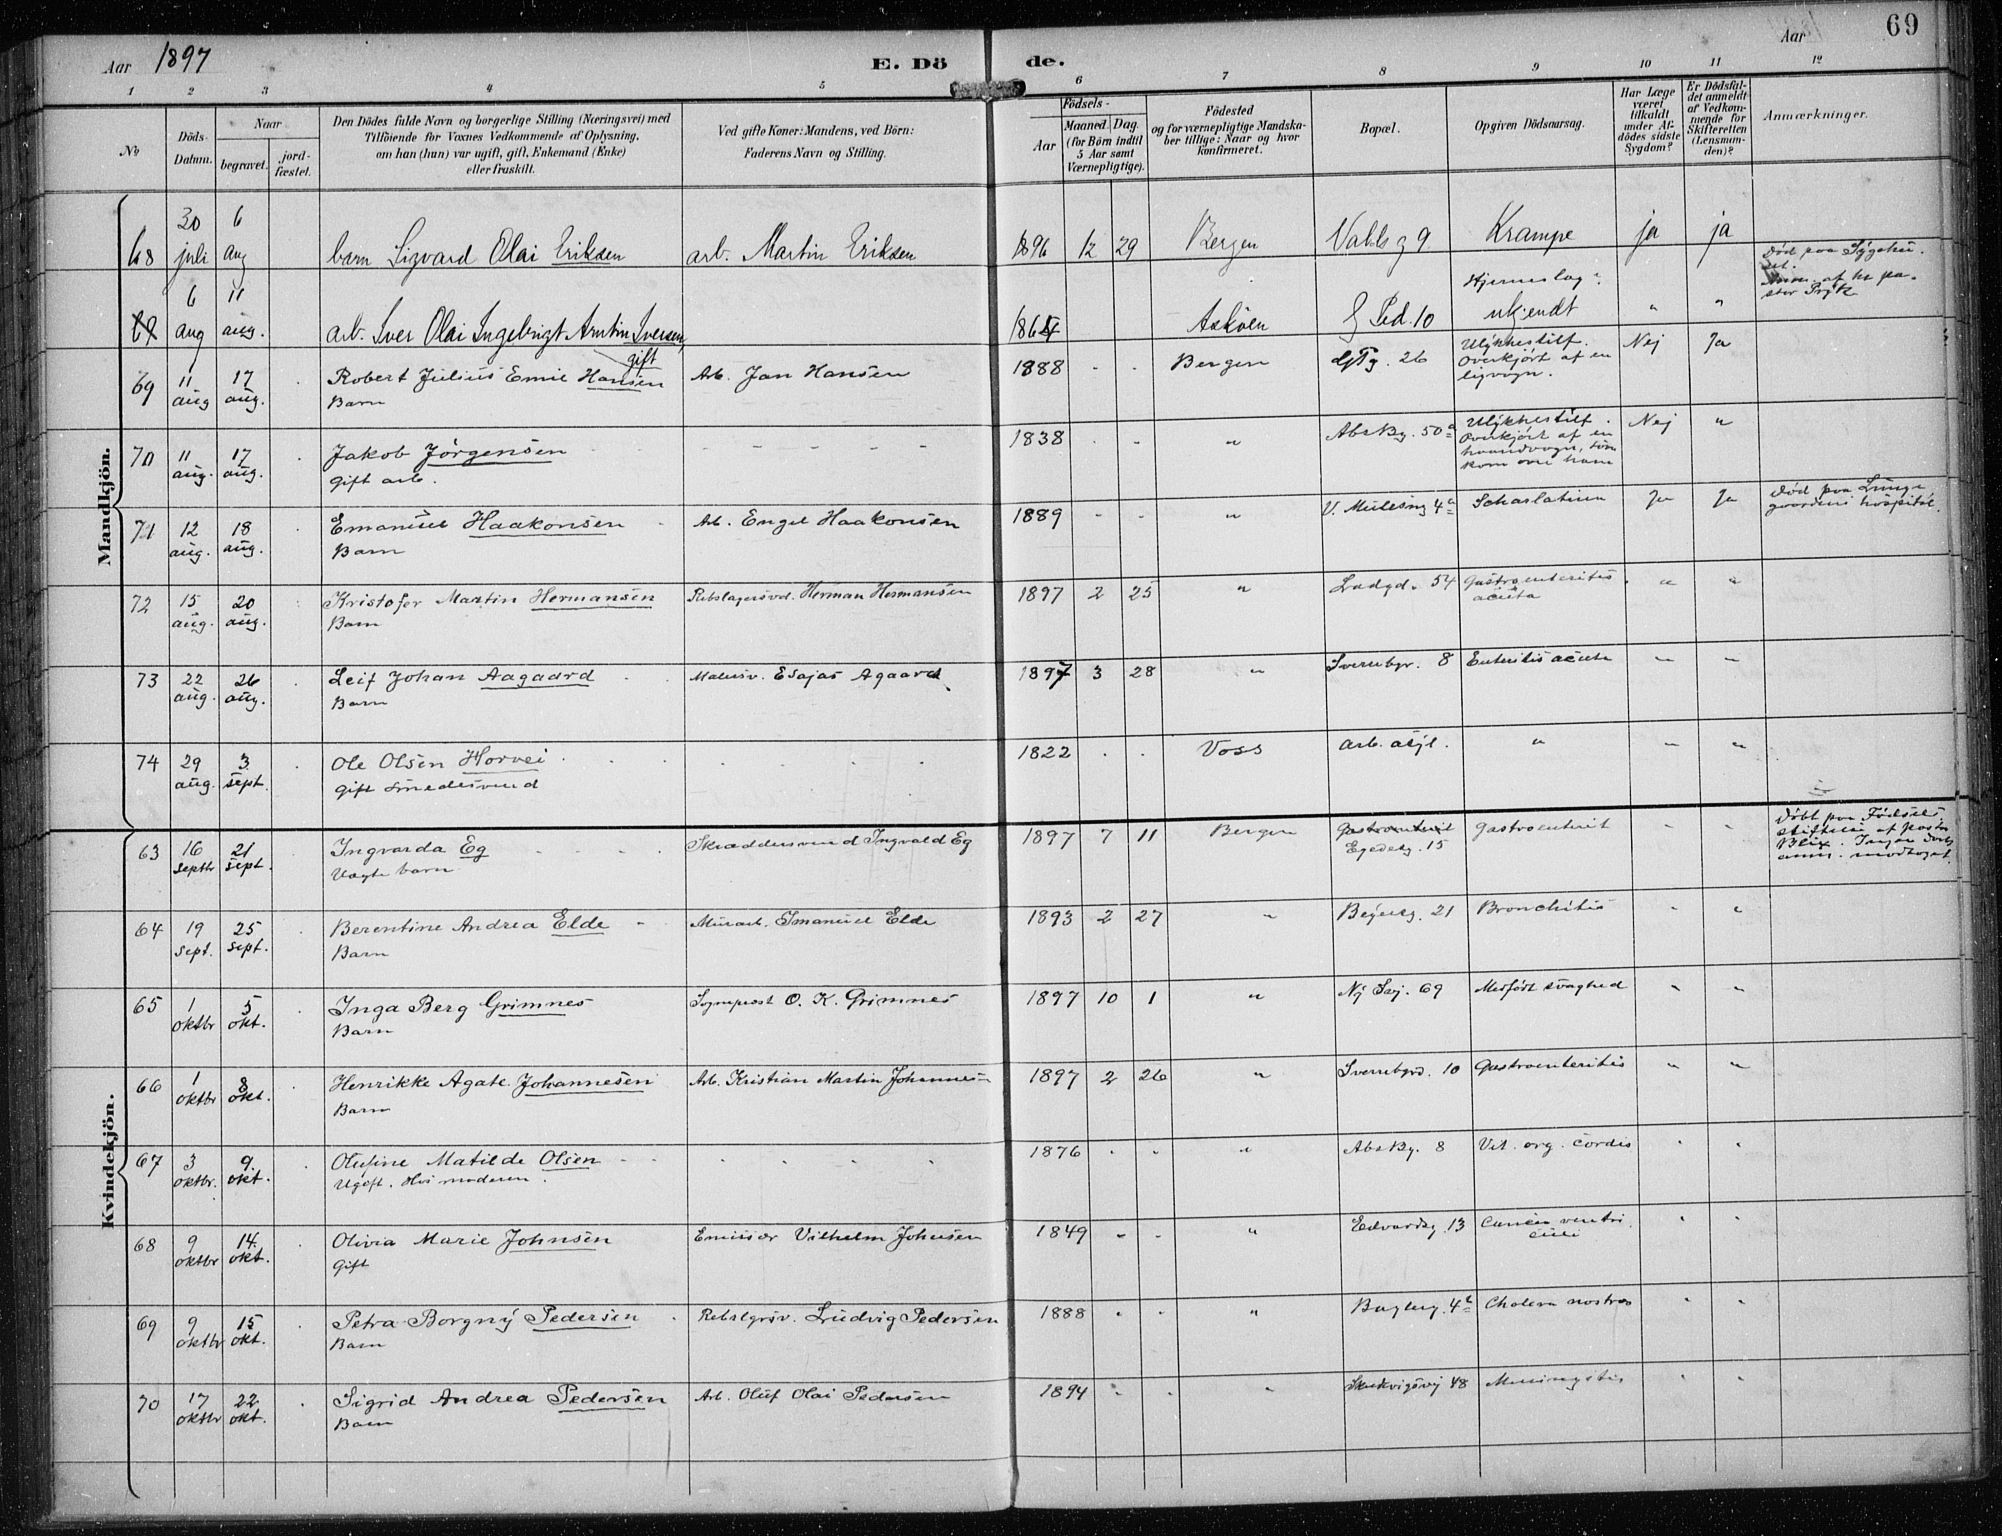 Aar 1897
E. Dö de.
Aar
69
1 2 3 4 5 6 7 8 9 10 11 12
No
Döds-Datum.
Naar
begravet.
jord-fæstet.
Den Dödes fulde Navn og borgerlige Stilling (Næringsvei) med
Tilföiende for Voxnes Vedkommende af Oplysning,
om han (hun) var ugift, gift, Enkemand (Enke)
eller fraskilt.
Ved gifte Koner: Mandens, ved Börn:
Faderens Navn og Stilling.
Födsels-
Aar
Maaned. Dag.
(for Börn indtil
5 Aar samt
Værnepligtige).
Födested
og for værnepligtige Mandska-
ber tillige: Naar og hvor
konfirmeret.
Bopæl.
Opgiven Dödsaarsag.
Har Læge
været
tilkaldt
under Af-
dödes sidste
Sygdom?
Er Dödsfal-
det anmeldt
af Vedkom-
mende for
Skifteretten
(Lensman-
den)?
Anmærkninger.
Mandkjön.
68 30 juli 6 aug barn Sigvard Olai Eriksen arb. Martin Eriksen 1896 12 29 Bergen 9 Krampe ja ja
6 aug 11 aug. arb. Iver Olai Ingebrigt Iversen, gift 1864 Askøen Ped. 10 Hjerneslag? ukjendt " " Død paa
69 11 aug 17 aug. Robert Julius Emil Hansen Arb. Jan Hansen 1888 . . Bergen 26 Ulykkestilf. Nej Ja
Barn Overkjørt af en
ligvogn.
70 11 aug. 17 aug. Jakob Jørgensen - - - - 1838 . . " 50a Ulykkestilf. Nej "
Gift arb. Overkjørt af en
haandvogn, som
kom over ham
71 12 aug. 18 aug. Emanuel Haakonsen Arb. Engel Haakonsen 1889 - - " V. Mulesmg 4a Scharlatina Ja Ja Død paa Lunge-
Barn gaardens hospital.
72 15 aug. 20 aug. Kristofer Martin Hermansen Rebslagersvd. Herman Hermansen 1897 2 25 " Ladgd. 54 Gastroenteritis " "
Barn acuta
73 22 aug. 26 aug. Leif Johan Aagaard Malersv. Esajas Agaard 1897 3 28 " Sverrebgr. 8 Enteritis acuta " "
Barn
74 29 aug. 3 sept. Ole Olsen Horvei . . . . 1822 . . Voss arb. asyl. " " "
Gift Smedesvend
Kvindekjön.
63 16 septbr 21 sept. Ingvarda Eg Skræddersvend Ingvald Eg 1897 7 11 Bergen Gastroenterit Gastroenterit " " Døbt paa Fødsels-
Uægte barn Egedesg. 15 stiftelse af pastor
Blix. Ingen
anm. modtaget.
64 19 sept. 25 sept. Berentine Andrea Elde Murarb. Emanuel Elde 1893 2 27 " 21 Bronchitis " "
Barn
65 1 oktbr 5 okt. Inga Berg Grimnes Sognepræst O. K. Grimnes 1897 10 1 " 69 Medfødt svaghed " "
Barn
66 1 oktbr 8 okt. Henrikke Agate Johannesen Arb. Kristian Martin Johannes- 1897 2 26 " Sverrebgrd. 10 Gastroenteritis " "
Barn
67 3 oktbr. 9 okt. Olufine Matilde Olsen . . . . 1876 . . " 8 Vit. org. cordis " "
Ugift. Hos moderen.
68 9 oktbr 14 okt. Olivia Marie Johnsen Emissær Vilhelm Johnsen 1849 - - " Edvardsg. 13 Cancer ventri- " "
Gift culi
69 9 oktbr 15 okt. Petra Borgny Pedersen Rebslgrsv. Ludvig Pedersen 1888 . . " 4b Cholera nostras " "
Barn
70 17 oktbr 22 okt. Sigrid Andrea Pedersen Arb. Oluf Olai Pedersen 1894 . . " Skudevigsvej 48 Meningitis " "
Barn